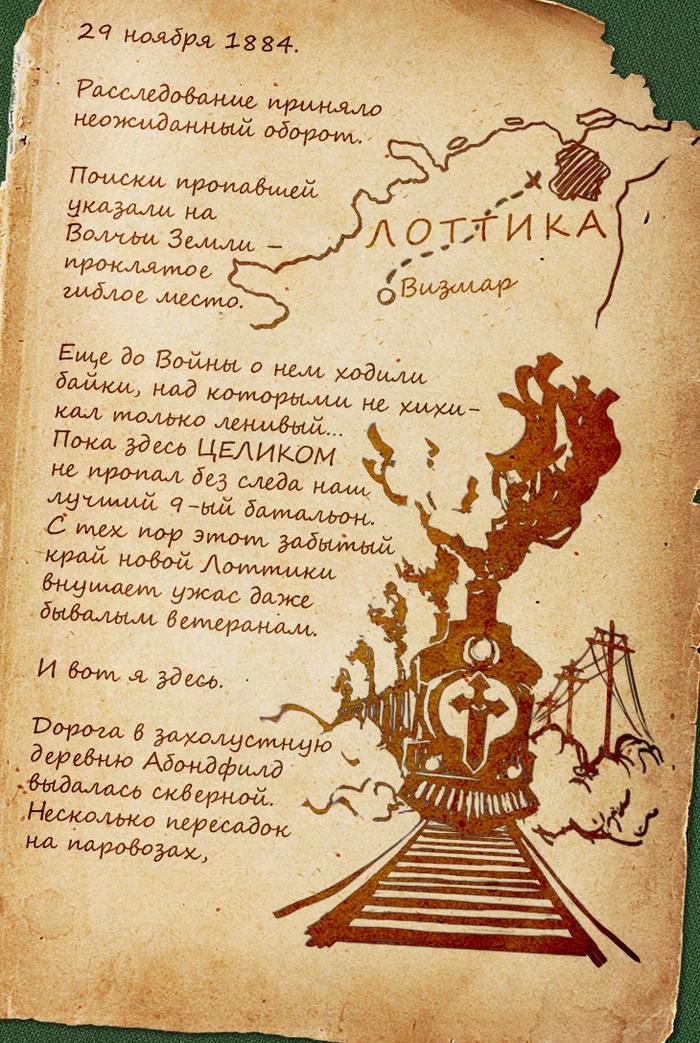 29 ноября 1884.
Расследование приняло
неожиданный оборот.
Поиски пропавшей
указали на
Волчьи Земли –
проклятое
гиблое место.
ЛОТТИКА
Визмар
Еще до Войны о нем ходили
байки, над которыми не хихи-
кал только ленивый...
Пока здесь ЦЕЛИКОМ
не пропал без следа наш
лучший 9-ый батальон.
С тех пор этот забытый
край новой Лоттики
внушает ужас даже
бывалым ветеранам.
И вот я здесь.
Дорога в захолустную
деревню Абондфилд
выдалась скверной.
Несколько пересадок
на паровозах,